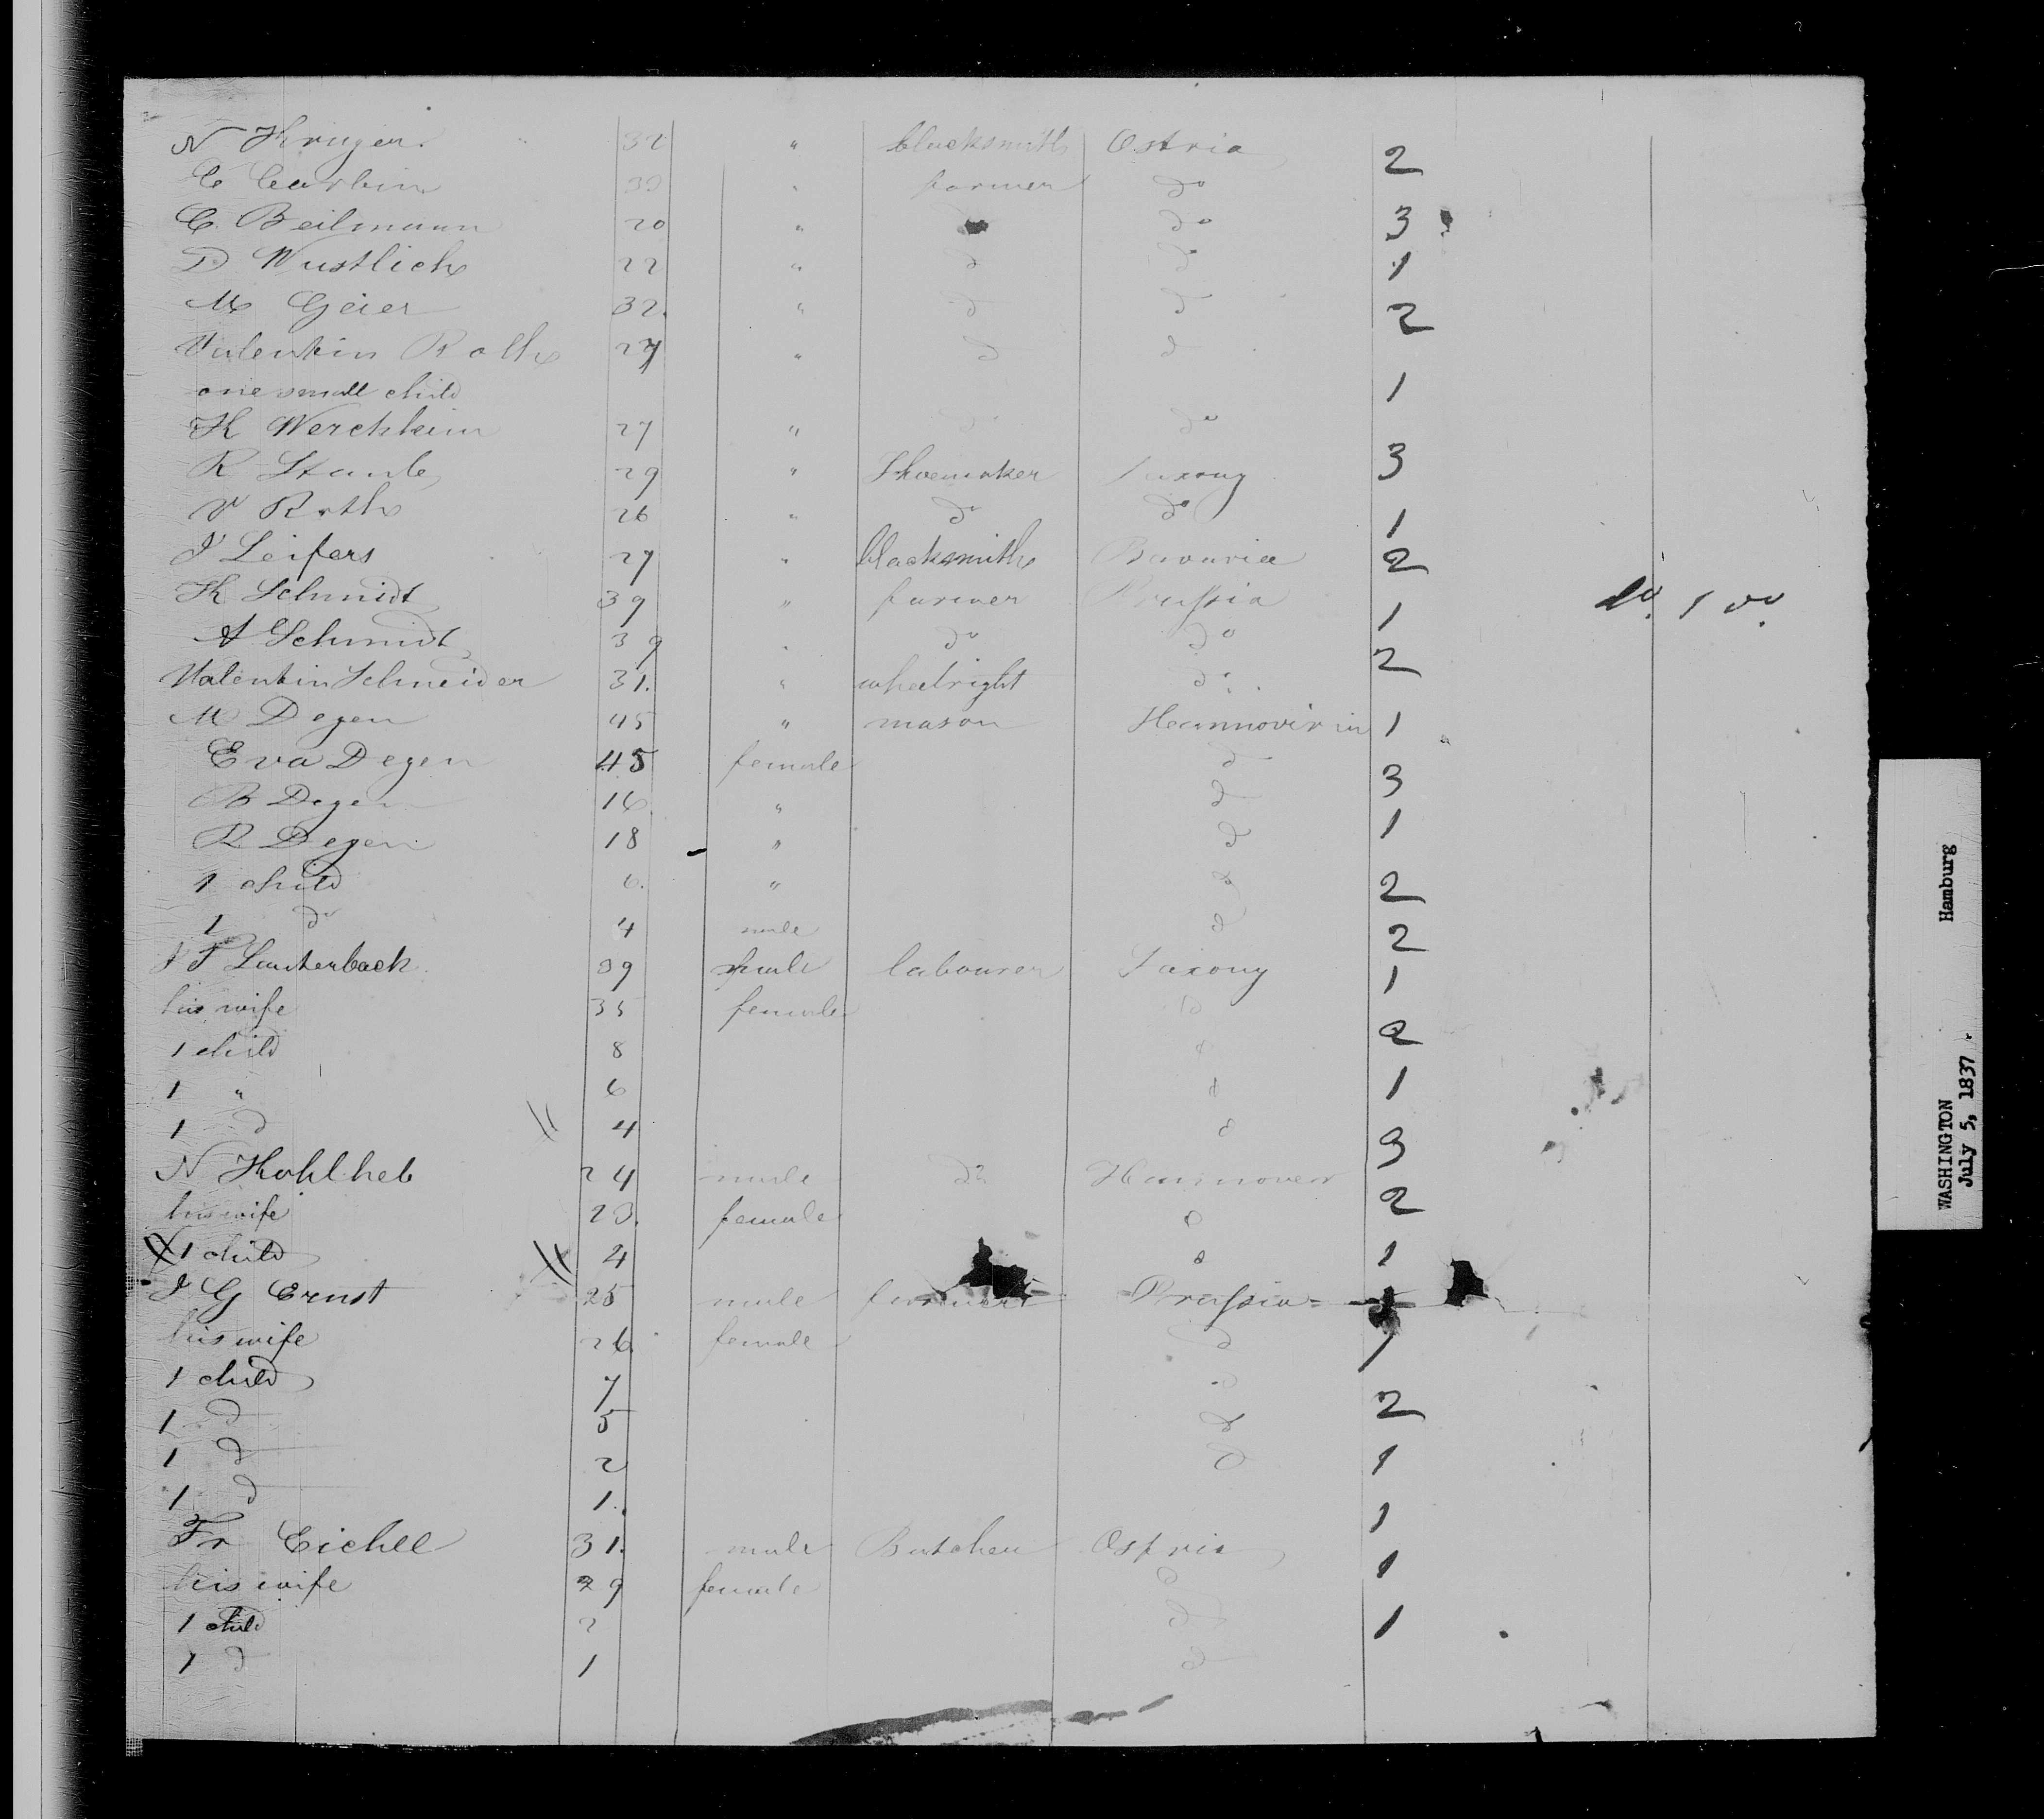 N Kruger 32 " blacksmith Ostria 2
C Carbin 30 " farmer do
C. Beilmann 20 " do 3
D Wustlich 22 " d do 1
M Geier 32. " d d 2
Valentin Roth 27 " d d
one small child 1
K Werchheim 27 " do do
R Staub 29 " Shoemaker Saxony 3
V Roth 26 " do do 1
J Leifers 27 " blacksmith Bavaria 2
K Schmidt 39 " farmer Prussia 1
A Schmidt 39 " do do 2
Valentin Schneider 31. " wheelright do
M Degen 45 " mason Hannovir in 1
Eva Degen 45 female d 3
B Degen 16 " d 1
R Degen 18 " d
1 child 6. " d 2
1 do 4 male d 2
J F Lauterbach 39 male labourer Saxony 1
his wife 35 female d
1 child 8 d 2
1 " 6 d 1
1 d 4 d 3
N Kohlheb 24 male do Hannover
his wife 23. female d 2
1 child 4 d 1
J G Ernst 25 male farmer Prussia 1
his wife 26. female d 1
1 child 7 d
1 d 5 d 2
1 d 2 d 1
1 d 1.
Fr Eichel 31. male Butcher Ostria 1
his wife 29 female d 1
1 child 2 d 1
1 d 1 d
Hamburg
WASHINGTON
July 5, 1837